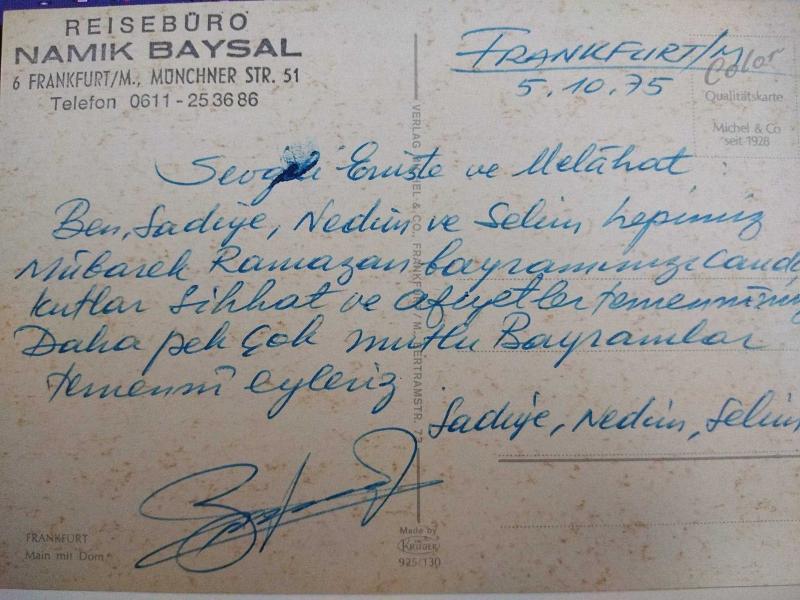 REISEBÜRO
NAMIK BAYSAL
6 FRANKFURT/M., MÜNCHNER STR. 51
Telefon 0611-253686
FRANKFURT/M
5.10.75
Color
Qualitätskarte
Michel & Co
seit 1928
Sevgili Enişte ve Melâhat
Ben, Sadiye, Nedim ve Selim hepimiz
Mübarek Ramazan bayramınızı
kutlar Sıhhat ve afiyetler
Daha pek çok mutlu Bayramlar
temenni eyleriz
Sadiye, Nedim, Selim
VERLAG MICHEL & CO., FRANKFURT/M.
FRANKFURT
Main mit Dom
Made by
KRÜGER
925/130